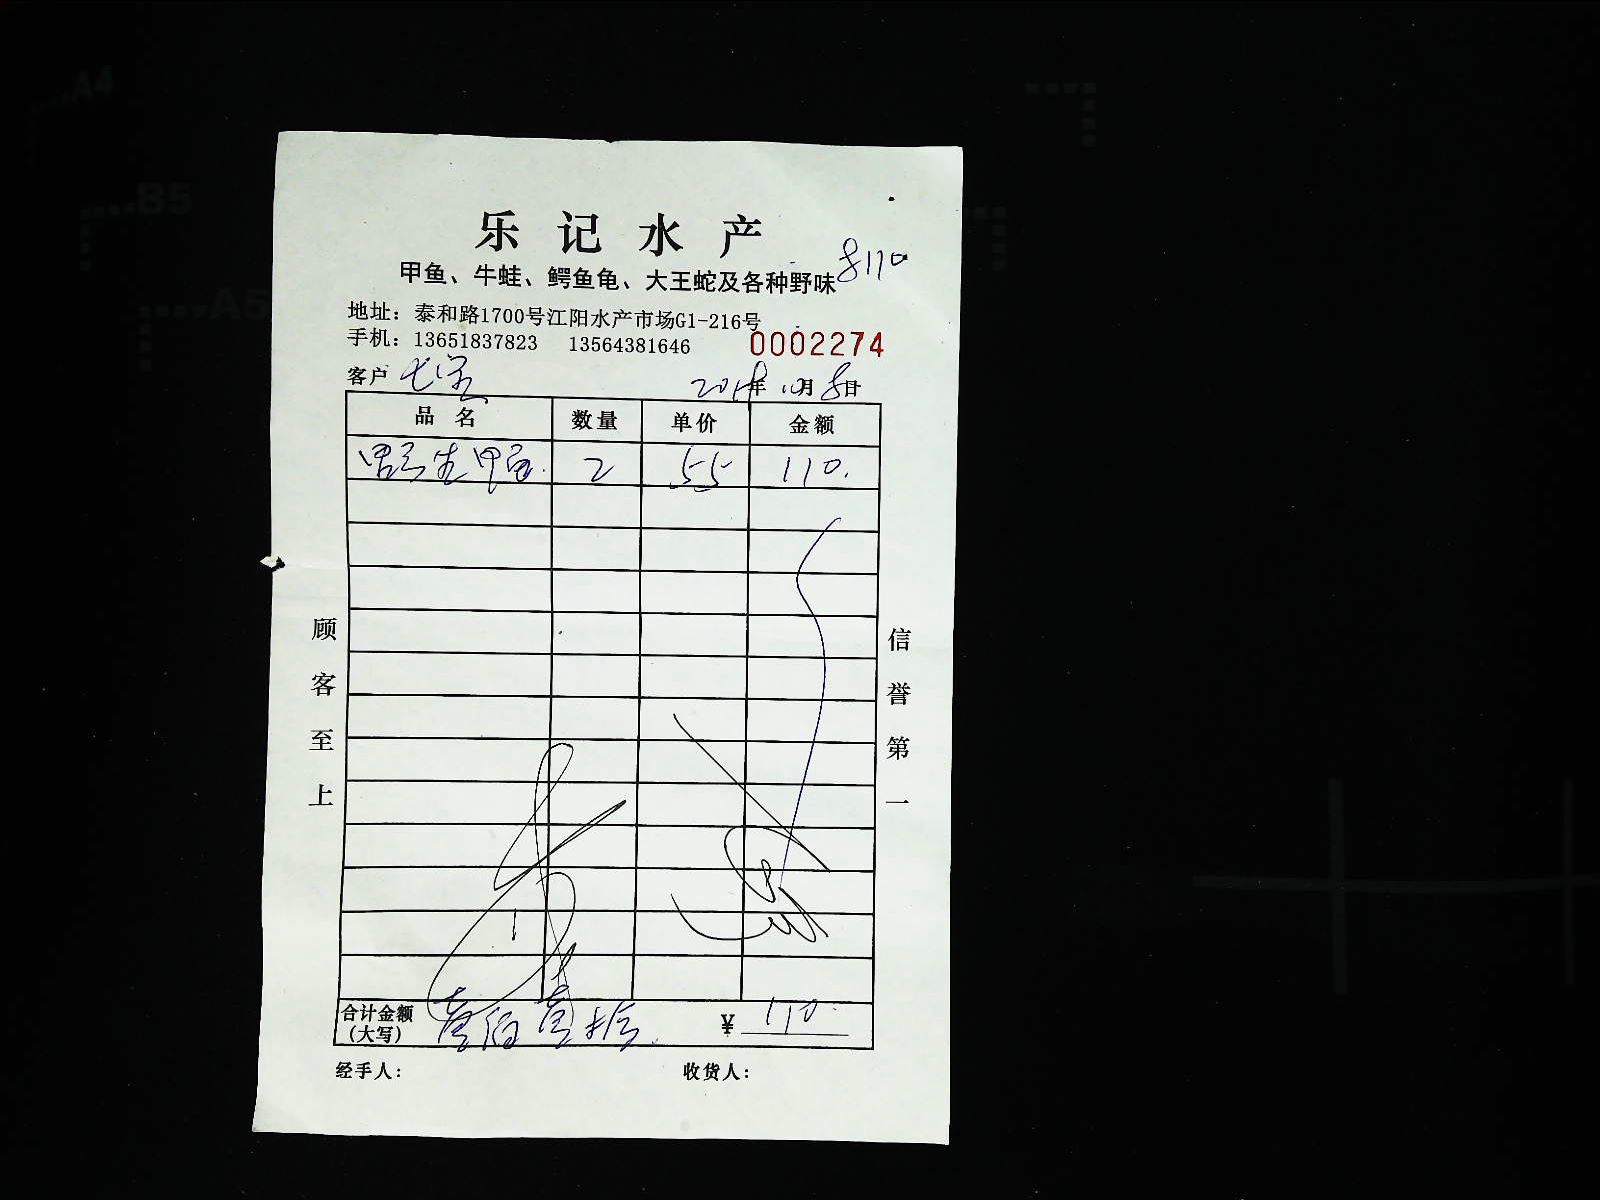 乐记水产
甲鱼、牛蛙、鳄鱼龟、大王蛇及各种野味
8110
地址：泰和路1700号江阳水产市场G1-216号
手机：13651837823 13564381646
0002274
客户 七宝
2018年10月8日
品名 数量 单价 金额
生甲鱼. 2 55 110.
顾客至上
信誉第一
合计金额(大写) 壹佰壹拾. ¥ 110.
经手人： 收货人：
A4
B5
A5